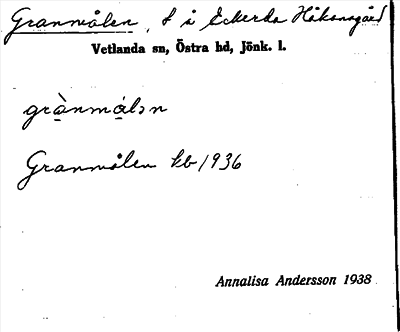 Granmålen, t i Eckerda Håkansgård
Vetlanda sn, Östra hd, Jönk. l.
grà̱nmå̱lən
Granmålen kb 1936
Annalisa Andersson 1938